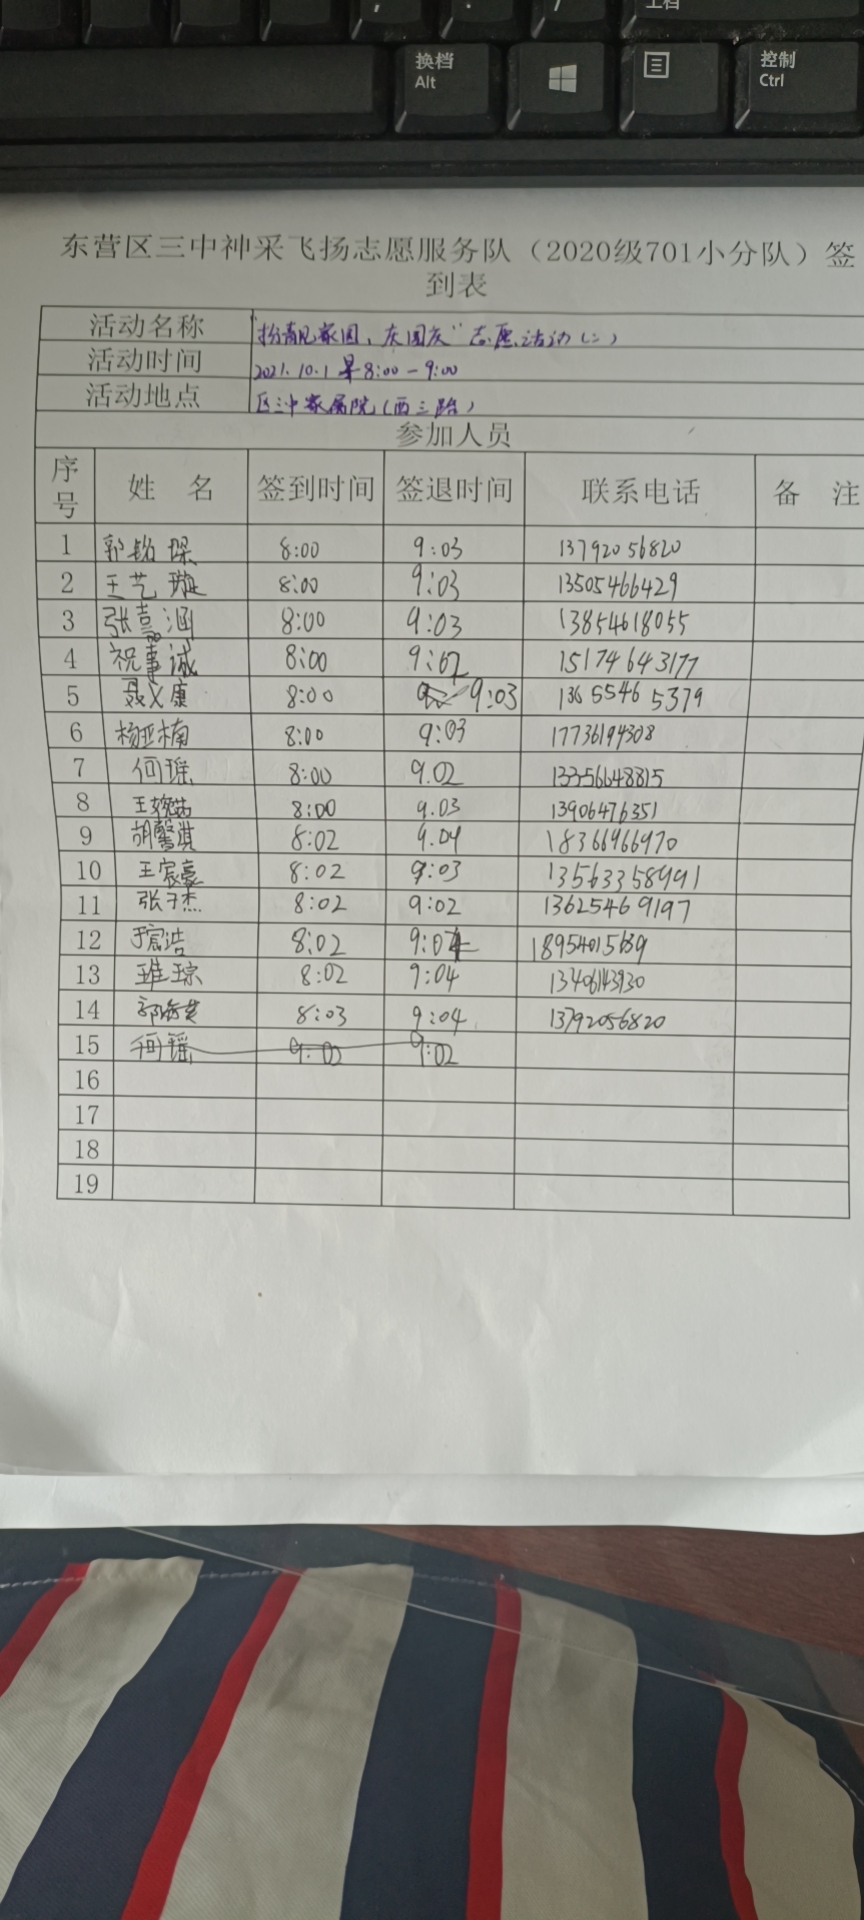 换档
Alt
控制
Ctrl
东营区三中神采飞扬志愿服务队（2020级701小分队）签
到表
活动名称 "扮靓家园，庆国庆"志愿活动(二)
活动时间 2021.10.1 早8:00-9:00
活动地点 区三中家属院(西三路)
参加人员
序号 姓 名 签到时间 签退时间 联系电话 备 注
1 郭铭琛 8:00 9:03 13792056820
2 王艺璇 8:00 9:03 13505466429
3 张嘉涵 8:00 9:03 13854618055
4 祝事诚 8:00 9:02 15174643177
5 聂义康 8:00 9:03 13655465379
6 杨亚楠 8:00 9:03 17736194308
7 何瑶 8:00 9.02 13356648815
8 王婉茹 8:00 9.03 13906476351
9 胡馨淇 8:02 9.04 18366966970
10 王宸豪 8:02 9:03 13563358991
11 张子杰 8:02 9:02 13625469197
12 于宸浩 8:02 9:04
13 8:02 9:04 13406143930
14 8:03 9:04 13792056820
15 何瑶 9:02 9:02
16
17
18
19